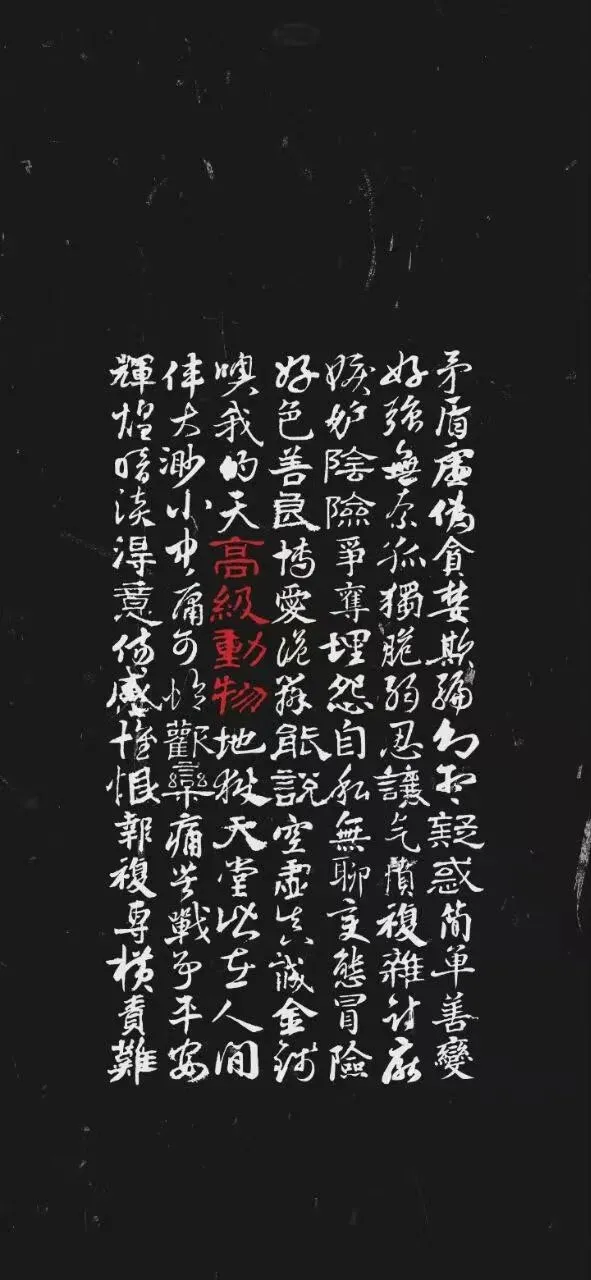 矛盾虛偽貪婪欺騙幻想疑惑簡單善變
好強無奈孤獨脆弱忍讓气憤複雜討厭
嫉妒陰險爭奪埋怨自私無聊变態冒險
好色善良博愛詭辯能說空虛真誠金錢
噢我的天高級動物地獄天堂皆在人間
伟大渺小中庸可怜歡樂痛苦戰争平安
輝煌暗淡得意傷感懷恨報複專橫責難